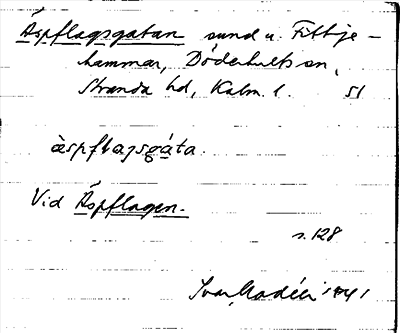 Äspflagsgatan sund u. Fittje-
hammar, Döderhults sn,
Stranda hd, Kalm. l. 51
äspflagsgáta.
Vid Äspflagen.
s. 128
Ivar Modéer 1941